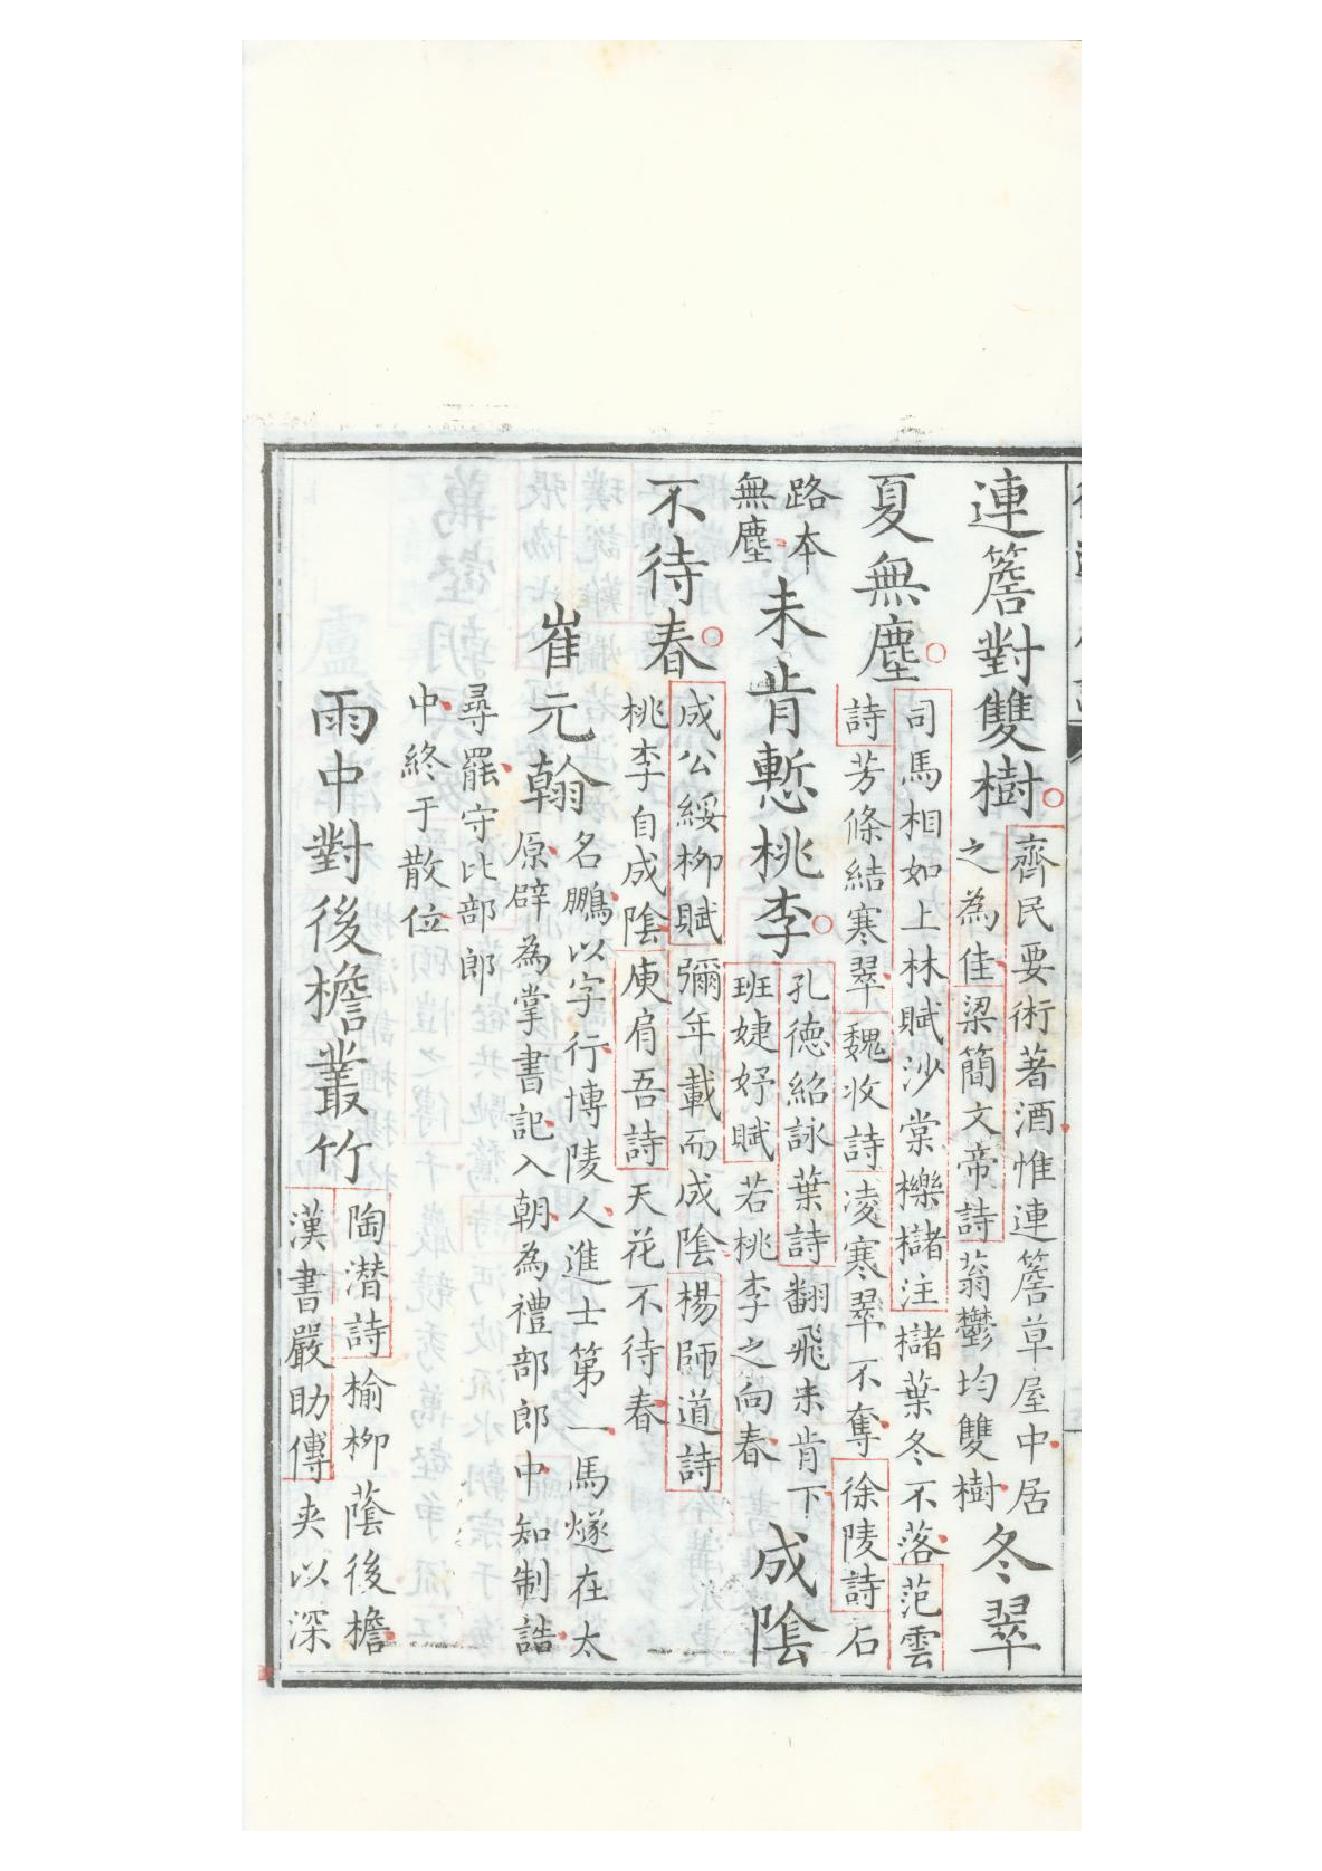 連簷對雙樹
齊民要術著酒惟連簷草屋中居
之為佳梁簡文帝詩蓊鬱均雙樹
冬翠
夏無塵
司馬相如上林賦沙棠櫟櫧注櫧葉冬不落范雲
詩芳條結寒翠魏收詩凌寒翠不奪徐陵詩石
路本
無塵
未肯慙桃李
孔德紹詠葉詩翻飛未肯下
班婕妤賦若桃李之向春
成陰
不待春
成公綏柳賦彌年載而成陰楊師道詩
桃李自成陰庾肩吾詩天花不待春
崔元翰
名鵬以字行博陵人進士第一馬燧在太
原辟為掌書記入朝為禮部郎中知制誥
尋罷守比部郎
中終于散位
雨中對後檐叢竹
陶潛詩榆柳蔭後檐
漢書嚴助傳夾以深